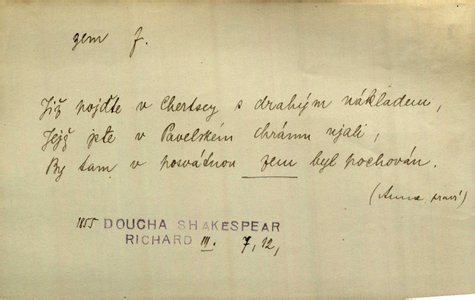 zem f.
Již pojďte v Chertsey s drahým nákladem,
Jejž jste v Pavelském chrámu vjali,
By tam v posvátnou zem byl pochován.
(Anna praví)
1855 DOUCHA SHAKESPEAR
RICHARD III. 7, 12,